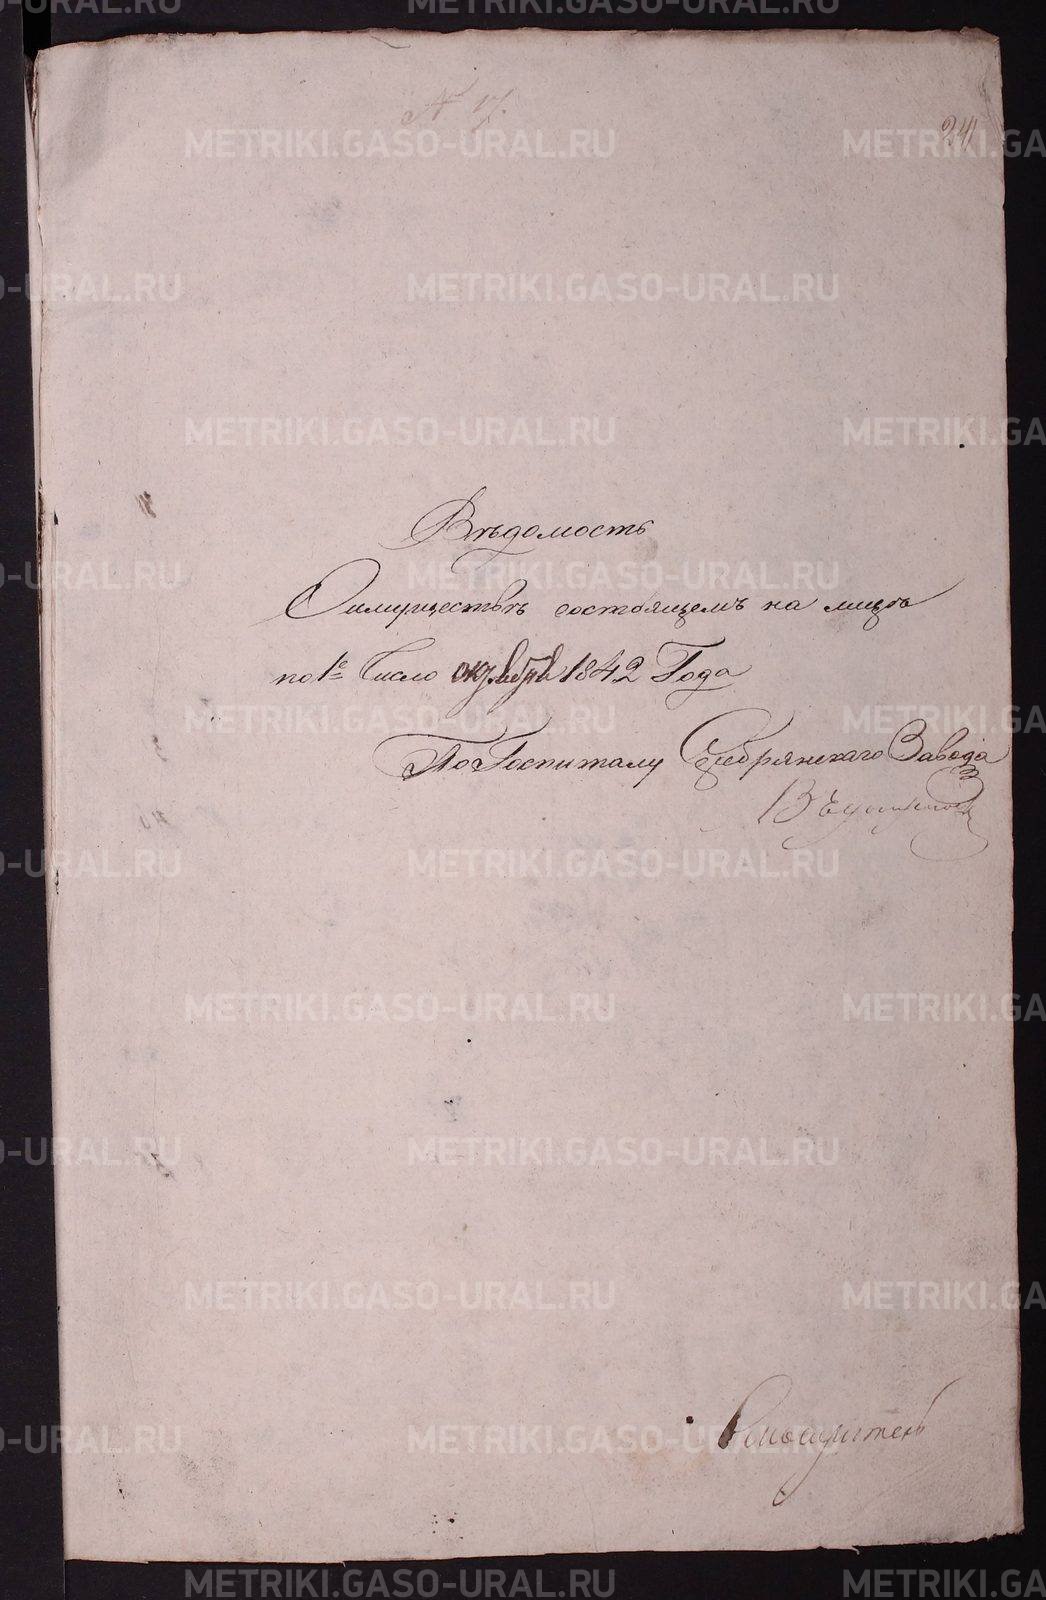 № 17.
241
Вѣдомость
О имуществѣ состоящемъ на лицѣ
по 1е Число октября 1842 Года
По Госпиталу Сребрянскаго Завода
METRIKI.GASO-URAL.RU